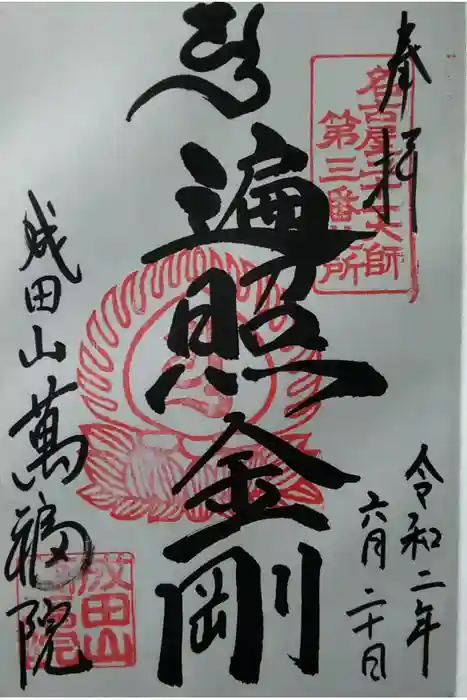 奉拝
名古屋二十一大師
第三番札所
令和二年
六月二十日
遍照金剛
成田山萬福院
成田山
萬福院